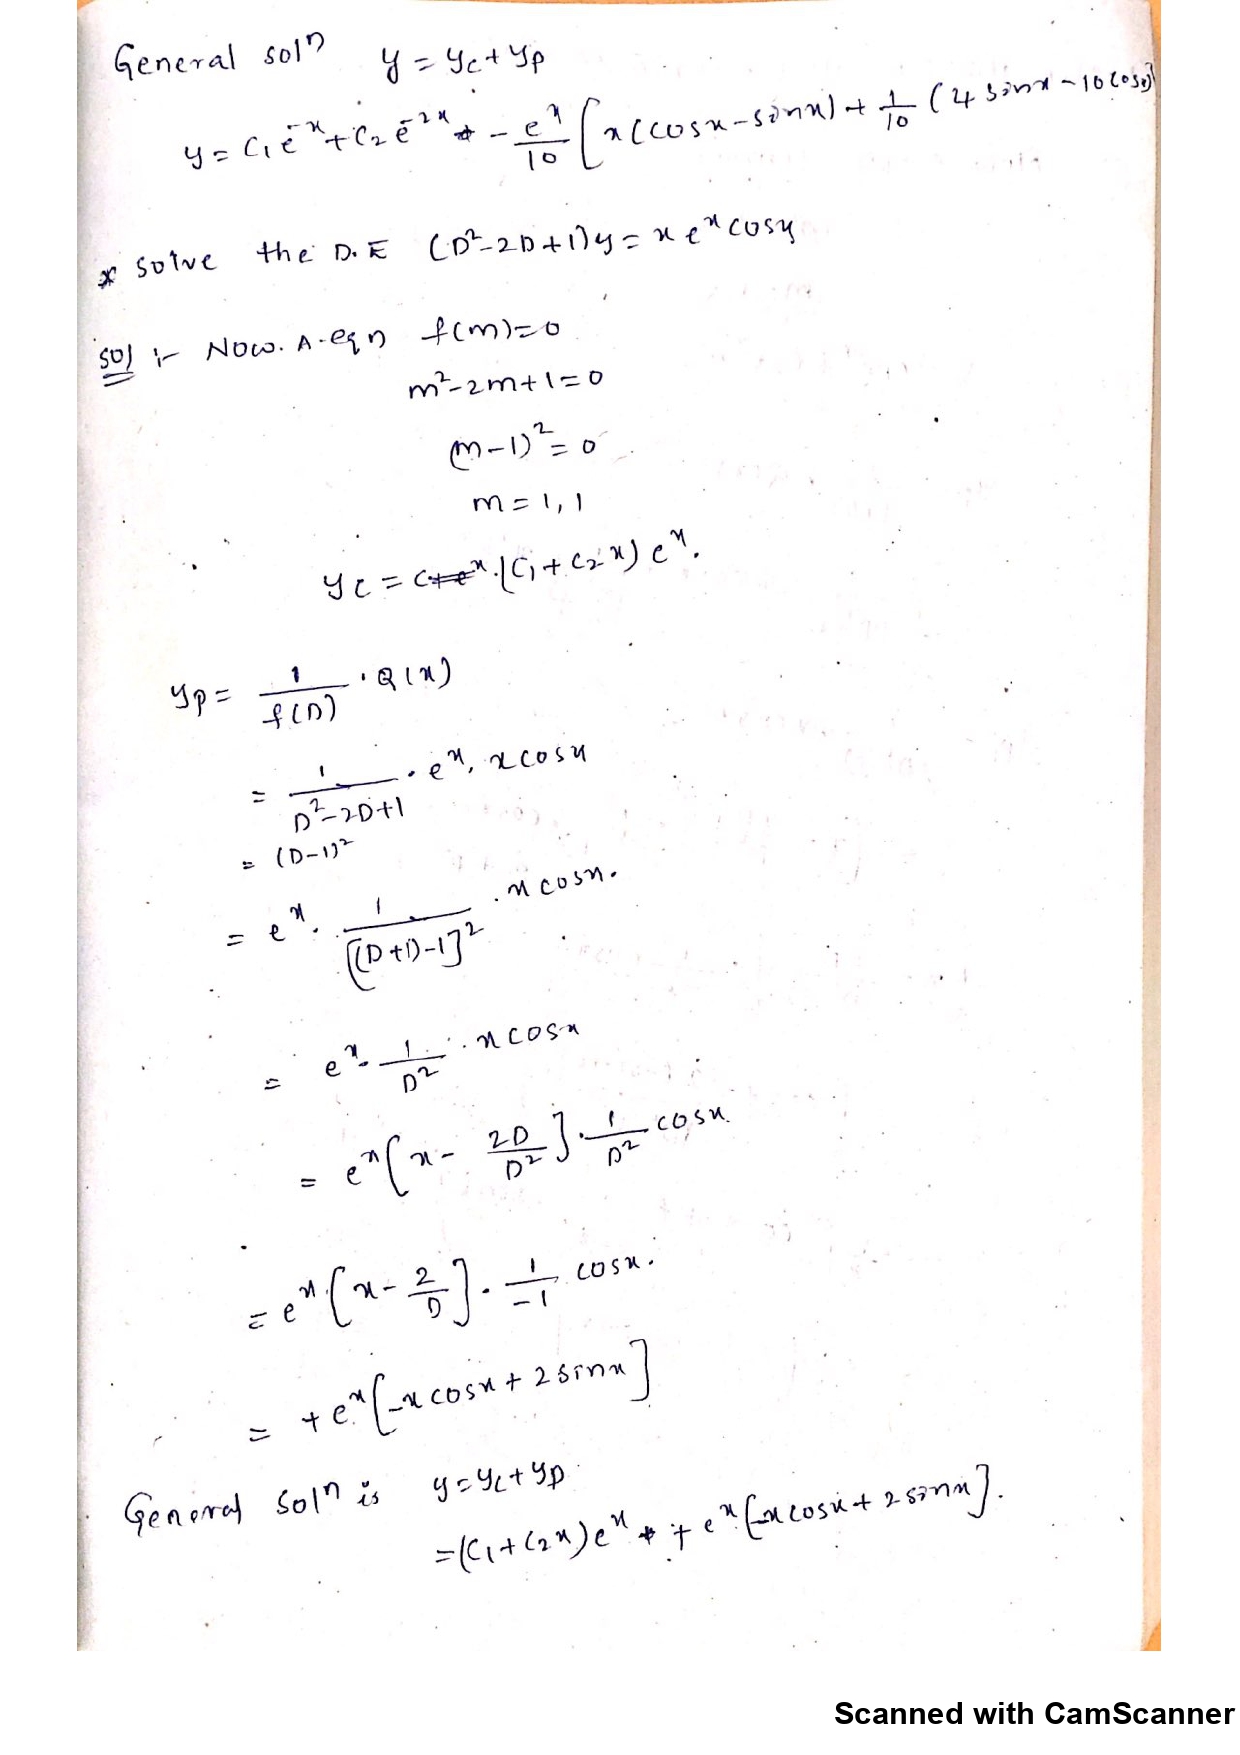 General solⁿ y = yc + yp
y = C₁e⁻ˣ + C₂e⁻²ˣ - eˣ/10 [x(cosx - sinx) + 1/10 (4 sinx - 10 cosx)]
* solve the D.E (D² - 2D + 1)y = x eˣ cosx
Sol :- Now. A-eqn f(m) = 0
m² - 2m + 1 = 0
(m - 1)² = 0
m = 1, 1
yc = (C₁ + C₂x) eˣ.
yp = 1/f(D) · Q(x)
= 1/(D² - 2D + 1) · eˣ. x cosx
= (D - 1)²
= eˣ. 1/[(D + 1) - 1]² . x cosx.
= eˣ. 1/D² . x cosx
= eˣ [x - 2D/D²] . 1/D² cosx.
= eˣ. [x - 2/D] . 1/-1 cosx.
= + eˣ [-x cosx + 2 sinx]
General solⁿ is y = yc + yp
= (C₁ + C₂x) eˣ + eˣ [-x cosx + 2 sinx].
Scanned with CamScanner